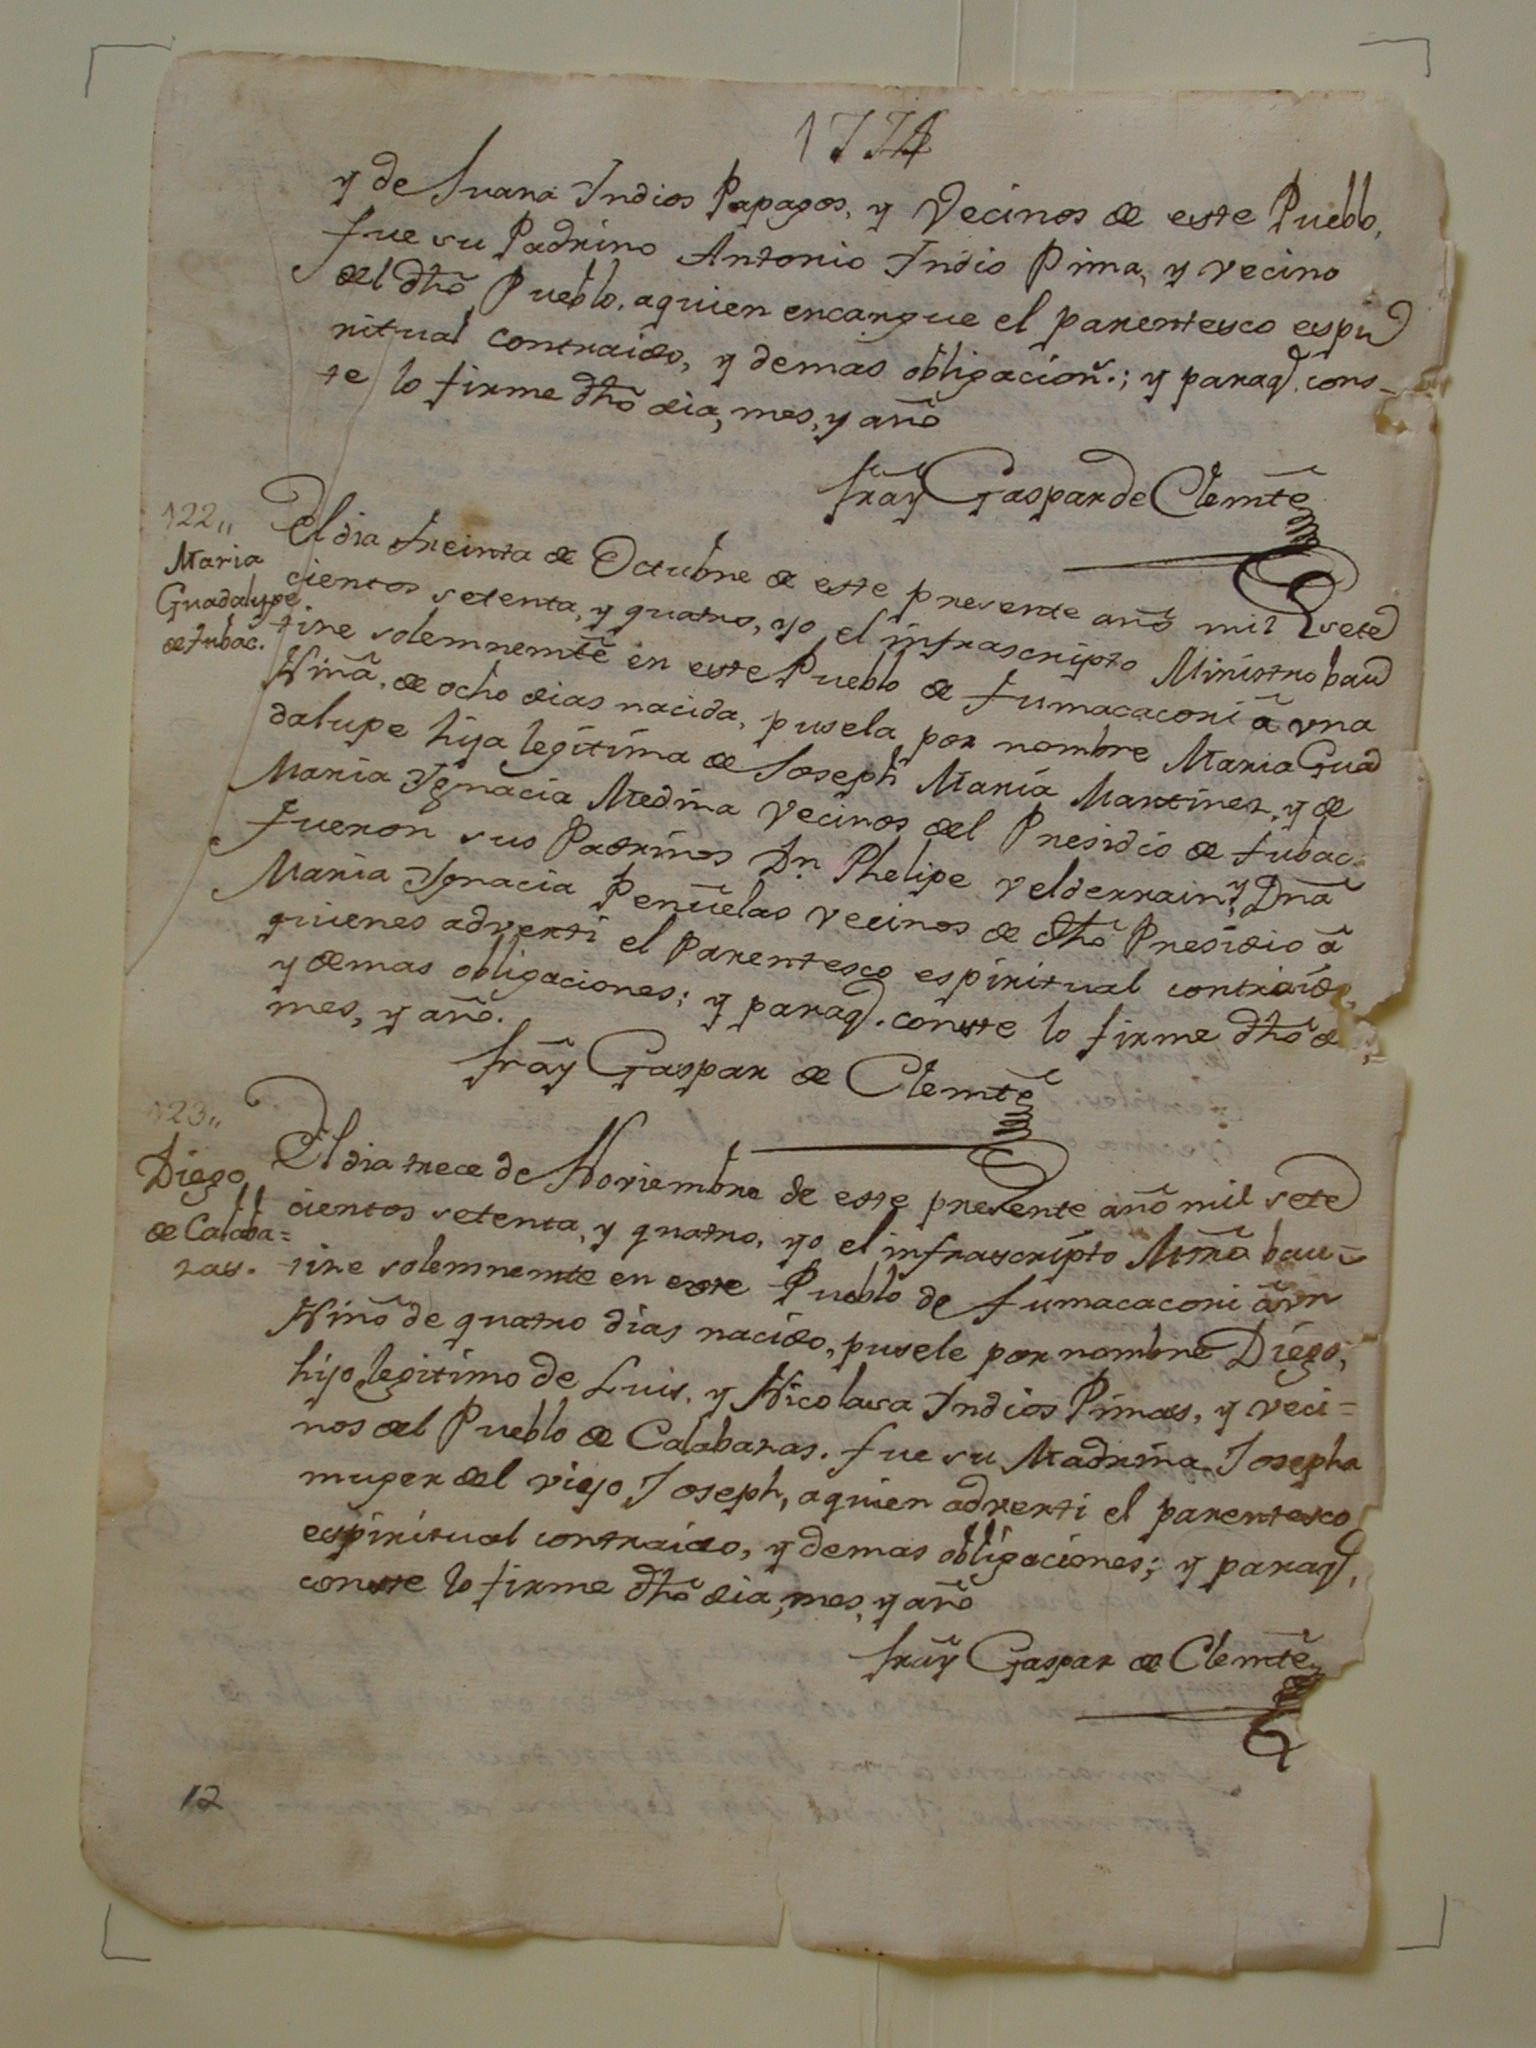 1774
y de Juana Indios Papagos, y Vecinos de este Pueblo,
fue su Padrino Antonio Indio Pima, y vecino
del dhõ Pueblo, aquien encargue el parentesco espi
ritual contraido, y demas obligacioñ.; y paraq. cons-
te lo firme dhõ dia, mes, y año
fraỹ Gaspar de Clemtẽ
122,,
Maria
Guadalupe
de Tubac.
El dia treinta de Octubre de este presente año mil sete
cientos setenta, y quatro, yo el infrascripto Ministro bau
tize solemnemtẽ en este Pueblo de Tumacacori ã una
Niña, de ocho dias nacida, pusela por nombre Maria Gua
dalupe hija legitima de Joseph Maria Martinez, y de
Maria Ygnacia Medina Vecinos del Presidio de Tubac.
fueron sus Padrinos Dn. Phelipe Velderrain, y Dnã
Maria Ygnacia Peñuelas vecinos de dhõ Presidio ã
quienes adverti el parentesco espiritual contraido,
y demas obligaciones; y paraq. conste lo firme dhõ d
mes, y año.
fraỹ Gaspar de Clemtẽ
123,,
Diego
de Calaba=
zas.
El dia trece de Noviembre de este presente año mil sete
cientos setenta, y quatro, yo el infrascripto Mnrõ bau-
tize solemnemte en este Pueblo de Tumacacori ã un
Niño de quatro dias nacido, pusele por nombre Diego,
hijo legitimo de Luis, y Nicolasa Indios Pimas, y veci=
nos del Pueblo de Calabazas. fue su Madrina Josepha
muger del viejo Joseph, aquien adverti el parentesco
espiritual contraido, y demas obligaciones; y paraq.
conste lo firme dhõ dia, mes, y año
fraỹ Gaspar de Clemtẽ
12